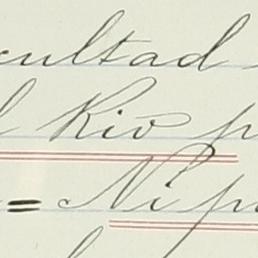 cultad
l Rio p
= Nipa